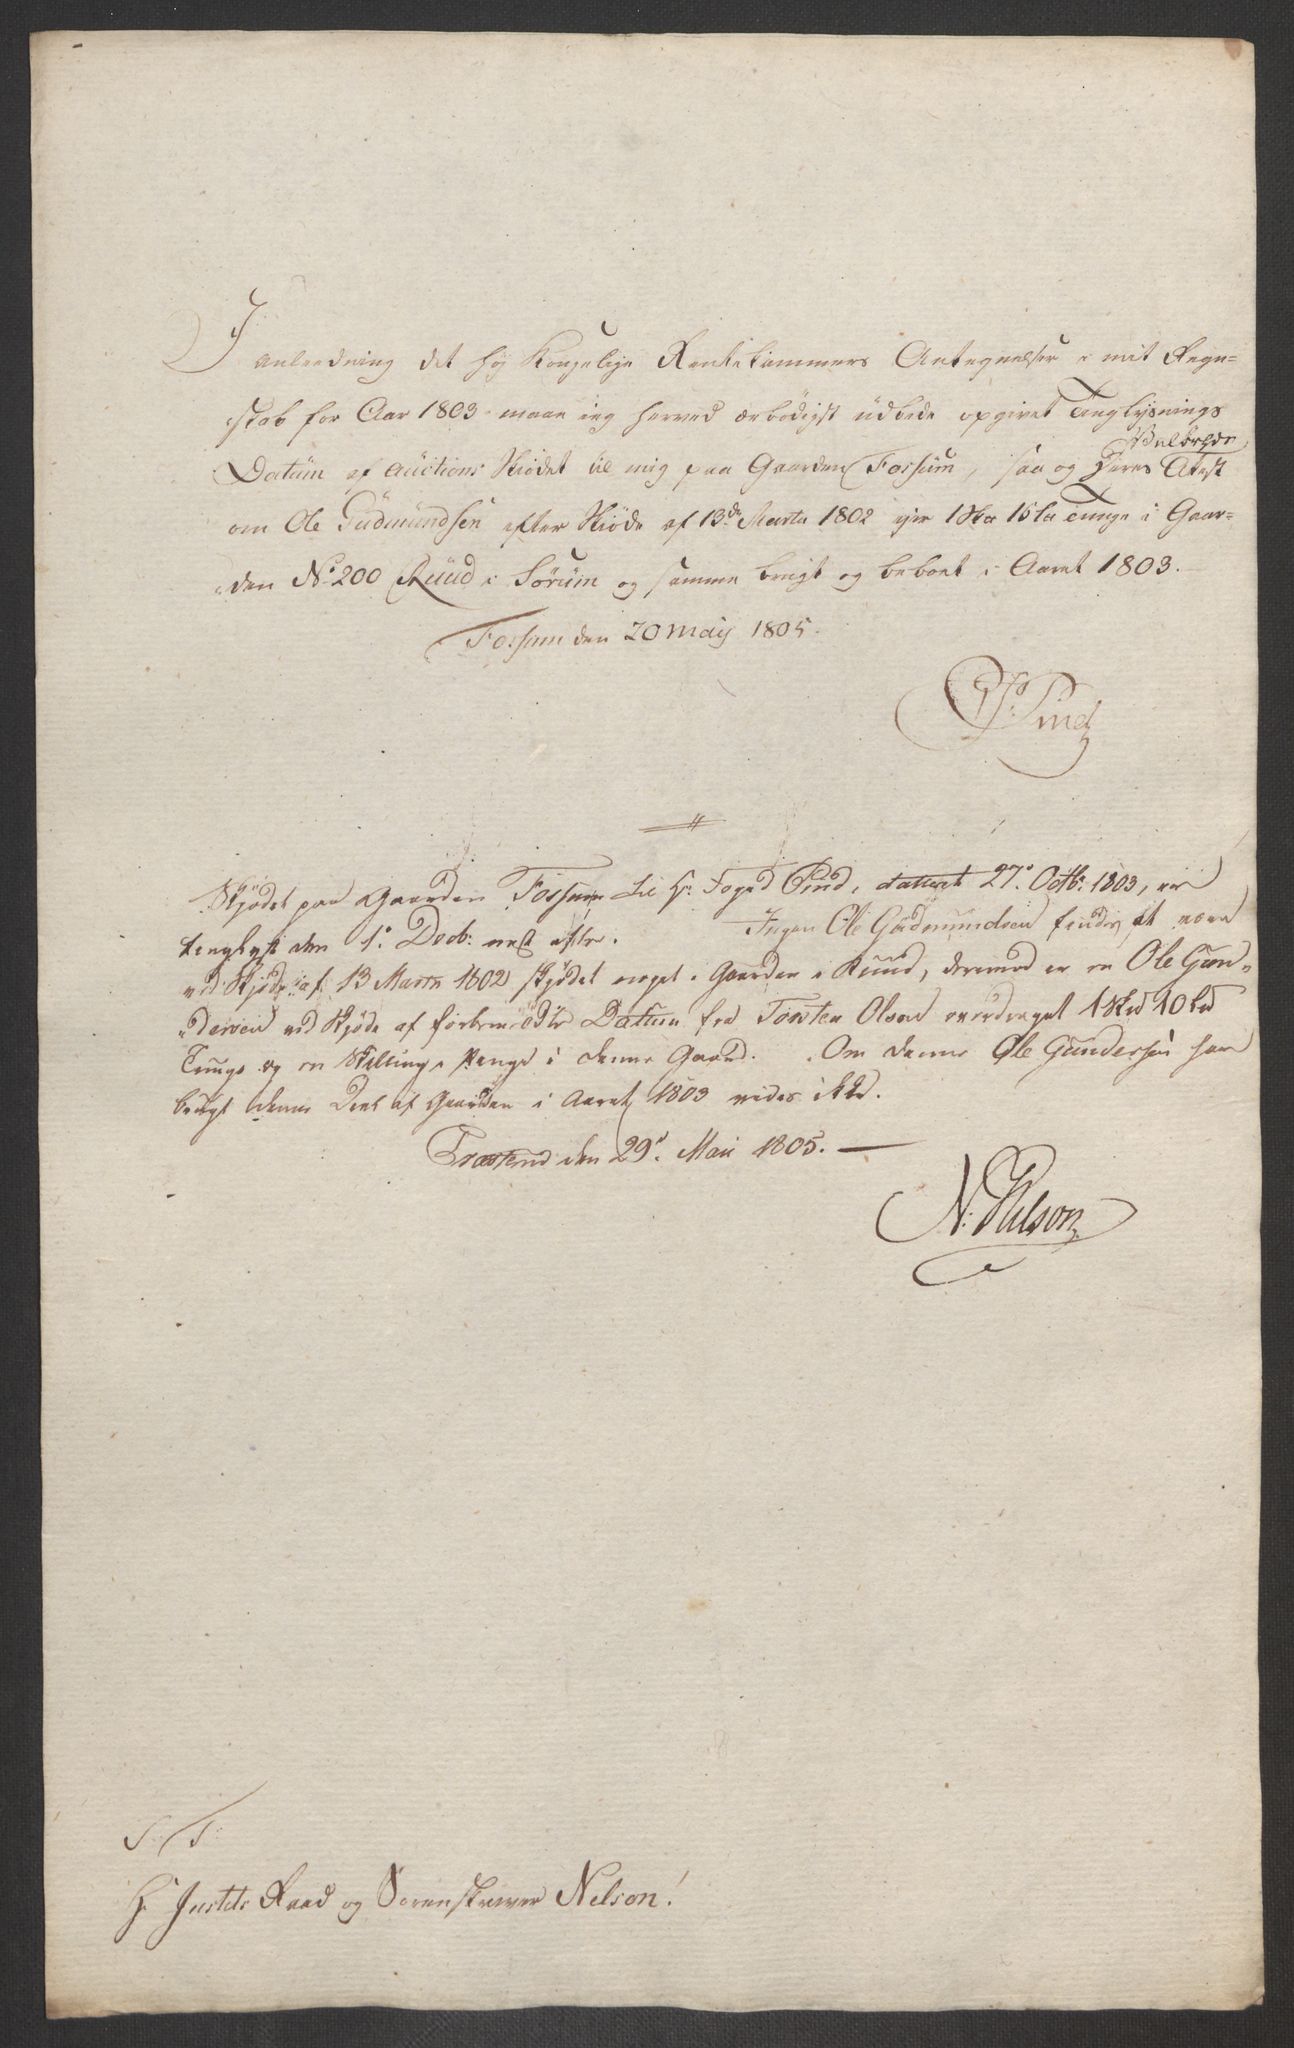 I
anleedning det høy Kongelige Rentekammers Antegnelser i mit Regn=
skab for Aar 1803 maae ieg herved ærbødigst udbede opgivet Tinglysnings
Velbrhds
Datum af Auctions Skiødet til mig paa Gaarden Fossum, saa og Deres Atest
om Ole Gudmundsen efter Skiøde af 13de Martz 1802 ejer 1 15 Tunge i Gaar=
den No 200 Ruud i Sørum og samme brugt og beboet i Aaret 1803.
Fossum den 20 May 1805.
Pind
Skjødet paa Gaarden Fossum til Hr: Foged Pind, datteret 27de Octbr: 1803, er
tinglyst den 1ste Decb: nest efter. Ingen Ole Gudmundsen findes at være
ved Skjøde af 13 Marts 1802 skjødet noget i Gaarden Ruud, derimod er en Ole Gun=
dersen ved Skjøde af forbemeldte Datum fra Torsten Olsen overdraget 1 10
Tunge og en Skilling Penge i denne Gaard. Om denne Ole Gundersen har
brugt denne Deel af Gaarden i Aaret 1803 vides ikke.
den 29de Maii 1805.
N: Nelson
S. T.
Hr Justits Raad og Sorenskriver Nelson!